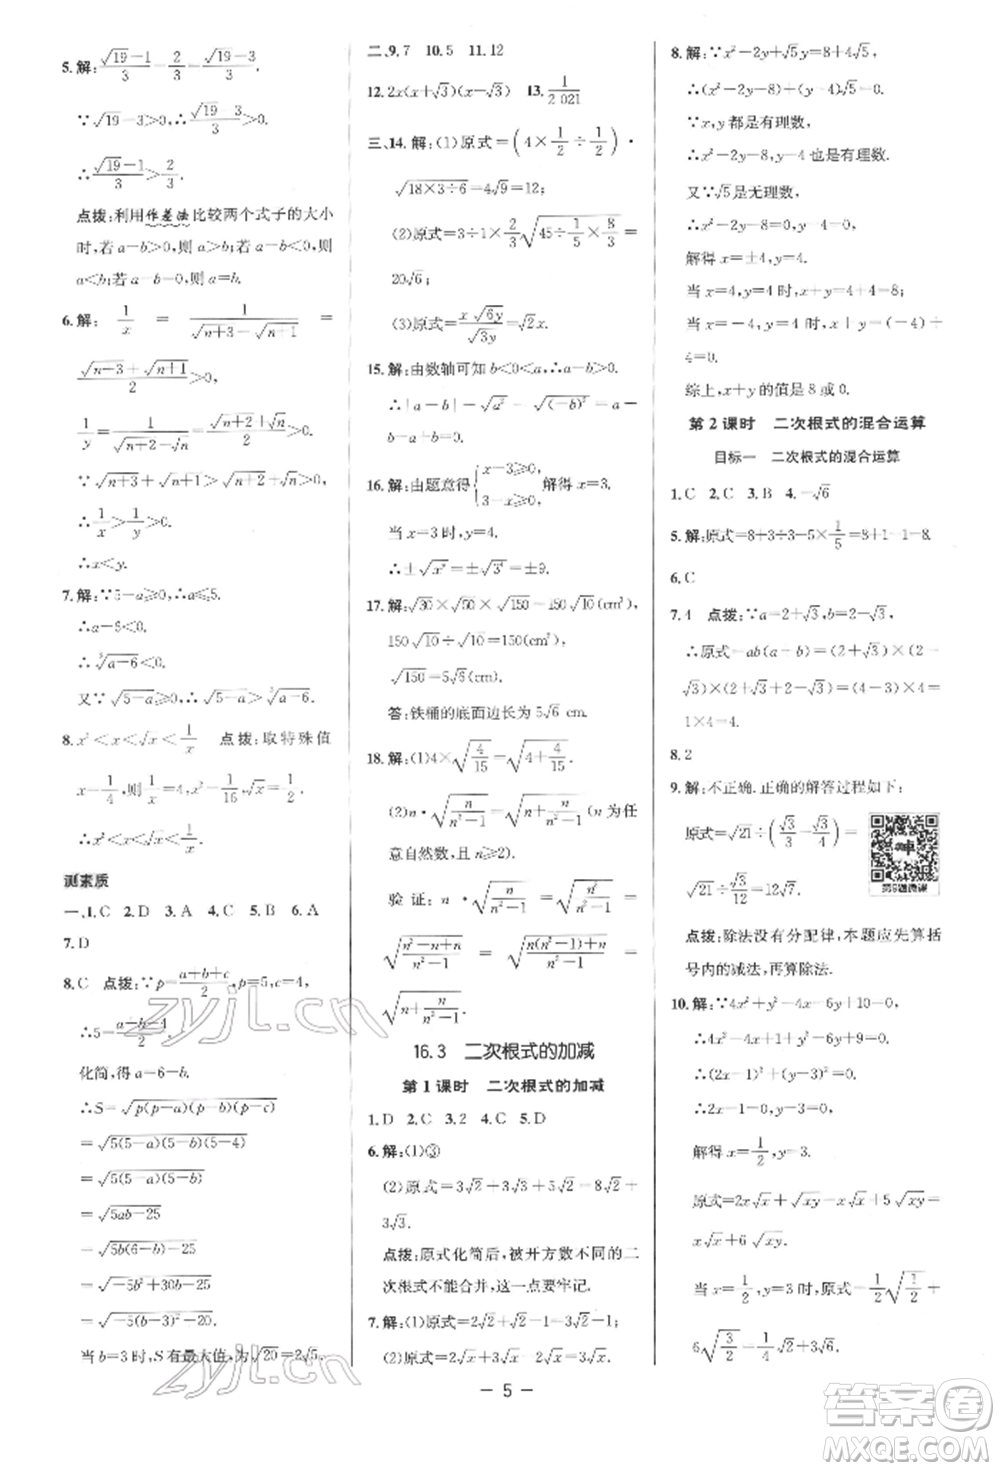 5. 解: (√19-1)/3 - 2/3 = (√19-3)/3.
∵√19-3>0, ∴(√19-3)/3>0.
∴(√19-1)/3>2/3.
点拨:利用作差法比较两个式子的大小
时,若a-b>0,则a>b;若a-b<0,则
a<b;若a-b=0,则a=b.
6. 解: 1/x = 1/(√n+3-√n-1) =
(√n-3+√n+1)/2>0,
1/y=(√n+2+√n)/2>0.
∵√n+3+√n+1>√n+2+√n>0,
∴1/x>1/y>0.
∴x<y.
7. 解:∵5-a≥0,∴a≤5.
∴a-6<0.
∴∛(a-6)<0.
又∵√(5-a)≥0,∴√(5-a)>∛(a-6).
8. x²<x<√x<1/x 点拨:取特殊值
x=1/4,则1/x=4,x²=1/16,√x=1/2.
∴x²<x<√x<1/x.
测素质
一、1.C 2.D 3.A 4.C 5.B 6.A
7. D
8. C 点拨:∵p=(a+b+c)/2,p=5,c=4,
∴5=(a-b-4)/2.
化简,得a=6-b.
∴S=√(p(p-a)(p-b)(p-c))
=√(5(5-a)(5-b)(5-4))
=√(5(5-a)(5-b))
=√(5ab-25)
=√(5b(6-b)-25)
=√(-5b²+30b-25)
=√(-5(b-3)²+20).
当b=3时,S有最大值,为√20=2√5.
二、9.7 10.5 11.12
12. 2x(x+√3)(x-√3) 13. 1/2 021
三、14. 解:(1)原式=(4×1/2÷1/2)·
√(18×3÷6)=4√9=12;
(2)原式=3÷1×2/3√(45÷1/5×8/3)=
20√6;
(3)原式=(x√6y)/√3y=√2x.
15. 解:由数轴可知b<0<a,∴a-b>0.
∴|a-b|-√a²-√(-b)²=a-b-a-
(-b)=a-b-a+b=0.
16. 解:由题意得{x-3≥0, 3-x≥0,解得x=3.
当x=3时,y=9.
∴±√x³y=±√3⁴=±9.
17. 解:√30×√50×√150=150√10(cm³),
150√10÷√10=150(cm²),
√150=5√6(cm).
答:铁桶的底面边长为5√6 cm.
18. 解:(1)4×√(4/15)=√(4+4/15)
(2)n·√(n/(n²-1))=√(n+n/(n²-1))(n为任
意自然数,n≥2).
验证:n·√(n/(n²-1))=√(n³/(n²-1))
=√((n³-n+n)/(n²-1))=√((n(n²-1)+n)/(n²-1))=
√(n+n/(n²-1)).
16.3 二次根式的加减
第1课时 二次根式的加减
1.D 2.C 3.2 4.C 5.D
6. 解:(1)③
(2)原式=3√2+3√3+5√2=8√2+
3√3.
点拨:原式化简后,被开方数不同的二
次根式不能合并,这一点要牢记.
7. 解:(1)原式=2√2+√2-1=3√2-1;
— 5 —
8. 解:∵x²-2y+√5y=8+4√5,
∴(x²-2y-8)+(y-4)√5=0.
∵x,y都是有理数,
∴x²-2y-8,y-4也是有理数.
又∵√5是无理数,
∴x²-2y-8=0,y-4=0,
解得x=±4,y=4.
当x=4,y=4时,x+y=4+4=8;
当x=-4,y=4时,x+y=(-4)+
4=0.
综上,x+y的值是8或0.
第2课时 二次根式的混合运算
目标一 二次根式的混合运算
1.C 2.C 3.B 4.-√6
5. 解:原式=8+3÷3×1/5=8+1-1=8.
6. C
7. 4 点拨:∵a=2+√3,b=2-√3,
∴原式=ab(a-b)=(2+√3)×(2-
√3)×(2+√3-2+√3)=(4-3)×
8. 2
9. 解:不正确.正确的解答过程如下:
原式=√21÷(√3/3-√3/4)=
√21÷√3/12=12√7.
第9题微课
点拨:除法没有分配律,本题应先算括
号内的减法,再算除法.
10. 解:∵4x²+y²-4x-6y+10=0,
∴4x²-4x+1+y²-6y+9=0.
∴(2x-1)²+(y-3)²=0.
∴2x-1=0,y-3=0,
解得x=1/2,y=3.
原式=2x√x+√xy-x√x+5√xy=
x√x+6√xy.
当x=1/2,y=3时,原式=1/2√(1/2)+
6√(3/2)=√2/4+3√6.
zyjl.cn
zyjl.cn
答案圈
MXQE.COM